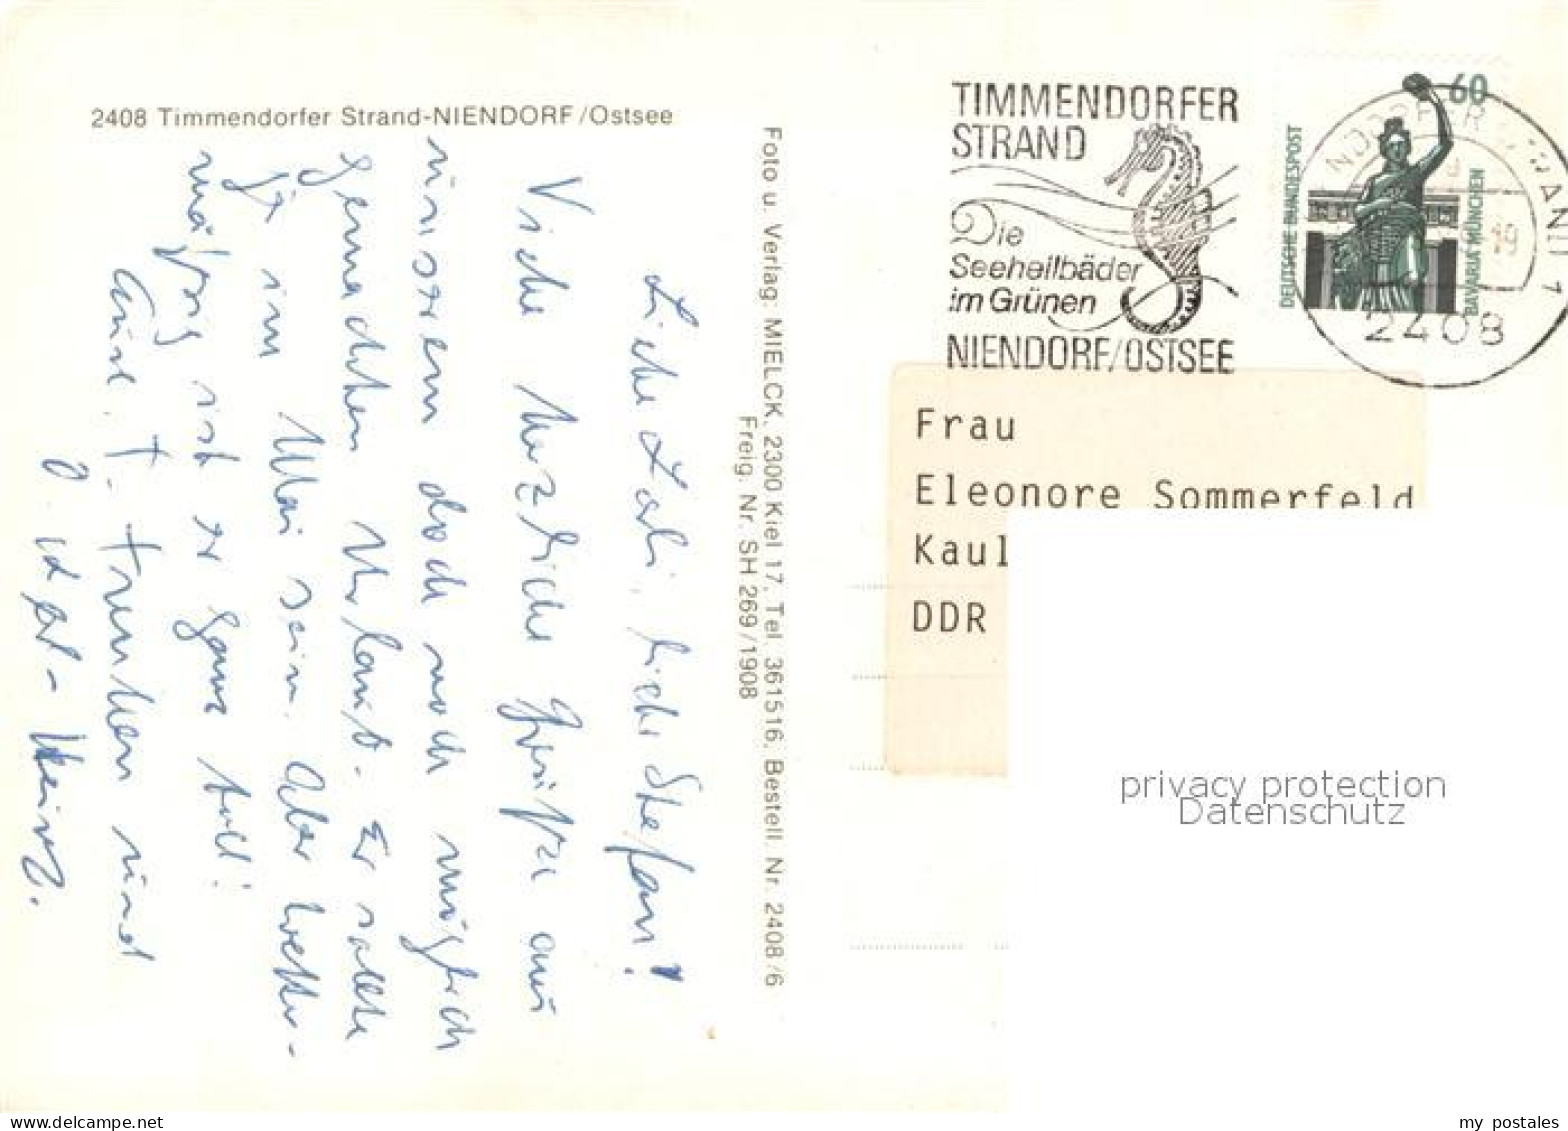 2408 Timmendorfer Strand-NIENDORF/Ostsee
Liebe Lorli, liebe Stefan!
Viele herzliche Grüße aus
unserem doch noch möglich
gemachten Urlaub. Er sollte
ja im Mai sein. Aber wetter-
mäßig ist er ganz toll!
Eure T. Frunken und
O. Heinz.
Foto u. Verlag: MIELCK, 2300 Kiel 17, Tel. 361516, Bestell. Nr. 2408/6
Freig. Nr. SH 269/1908
TIMMENDORFER
STRAND
Die
Seeheilbäder
im Grünen
NIENDORF/OSTSEE
60
DEUTSCHE BUNDESPOST
BAVARIA MÜNCHEN
2408
Frau
Eleonore Sommerfeld
Kaul
DDR
privacy protection
Datenschutz
my postales